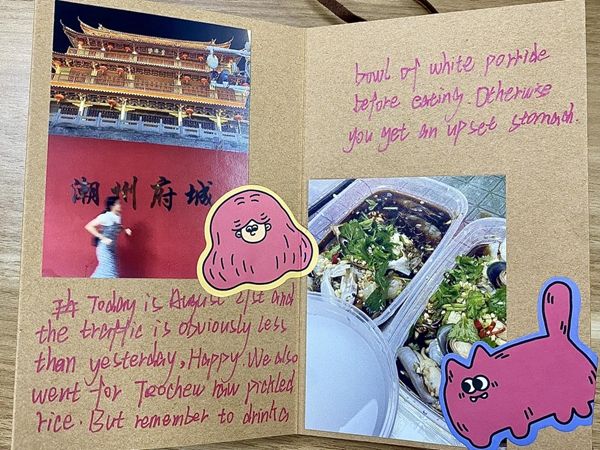 潮州府城
Today is August 21st and
the traffic is obviously less
than yesterday, Happy. We also
went for Teochew raw pickled
rice. But remember to drink a
bowl of white porride
before eating. Otherwise
you get an upset stomach.